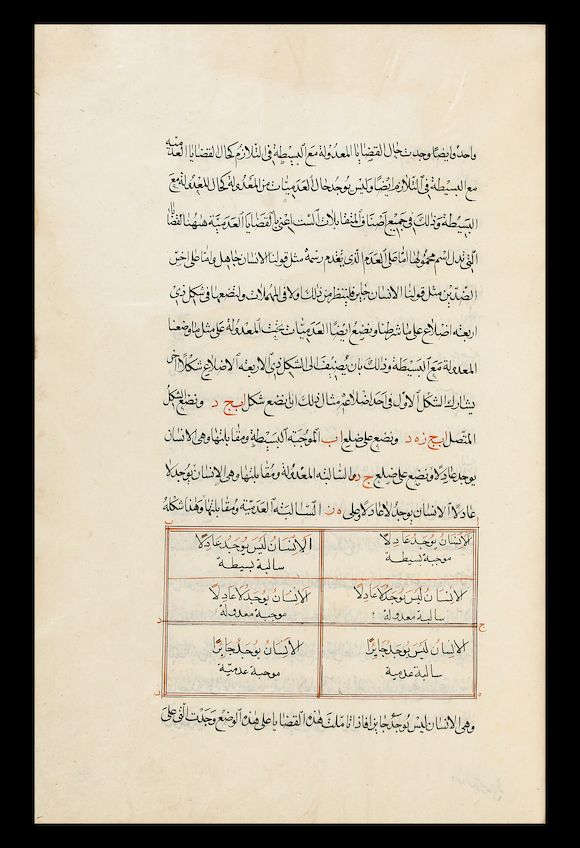 واحدا وايضا وجدت حال القضايا المعدولة مع البسيطة في التلازم كحال القضايا العدمية
مع البسيطة في التلازم ايضا وليس يوجد حال العدميات من المعدولة كحال المعدولة مع
البسيطة وذلك في جميع اصناف المتقابلات الست اعني بالقضايا العدمية ههنا القضايا
التي يدل اسم محمولها اما على العدم الذي تقدم رسمه مثل قولنا الانسان جاهل واما على اخس
الضدين مثل قولنا الانسان جاير فلينظر من ذلك ولا في المهملات ولنضعها في شكل ذي
اربعة اضلاع على ما شرطنا ونضع ايضا العدميات تحت المعدولة على مثل ما وضعنا
المعدولة مع البسيطة وذلك بان نضيف الى الشكل ذي الاربعة الاضلاع شكلا اخر
يشارك الشكل الاول في احد اضلاعه مثال ذلك ان نضع شكل ا ب ج د ونضع الشكل
المتصل ا ب ج ز ه د ونضع على ضلع ا ب الموجبة البسيطة ومقابلتها وهي الانسان
يوجد عادلا ونضع على ضلع ج د السالبة المعدولة ومقابلتها وهي الانسان يوجد لا
عادلا الانسان يوجد لا عادلا وعلى ه ز السالبة العدمية ومقابلتها وهذا شكله
الانسان يوجد عادلا
موجبة بسيطة
الانسان ليس يوجد عادلا
سالبة بسيطة
الانسان ليس يوجد لا عادلا
سالبة معدولة
الانسان يوجد لا عادلا
موجبة معدولة
الانسان ليس يوجد جايرا
سالبة عدمية
الانسان يوجد جايرا
موجبة عدمية
وهي الانسان ليس يوجد جايرا فاذا تاملت هذه القضايا على هذه الوضع وجدت التي على